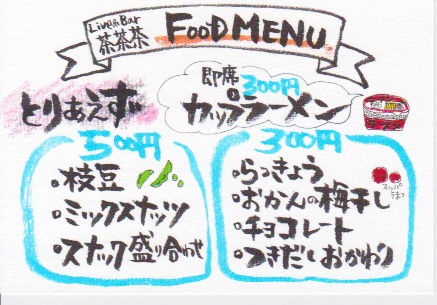 Live&Bar
茶茶茶
FOOD MENU
とりあえず
即席 300円
カップラーメン
ラーメン
500円
・枝豆
・ミックスナッツ
・スナック盛り合わせ
300円
・らっきょう
・おかんの梅干し
スッパ
うまっ
・チョコレート
・つきだしおかわり